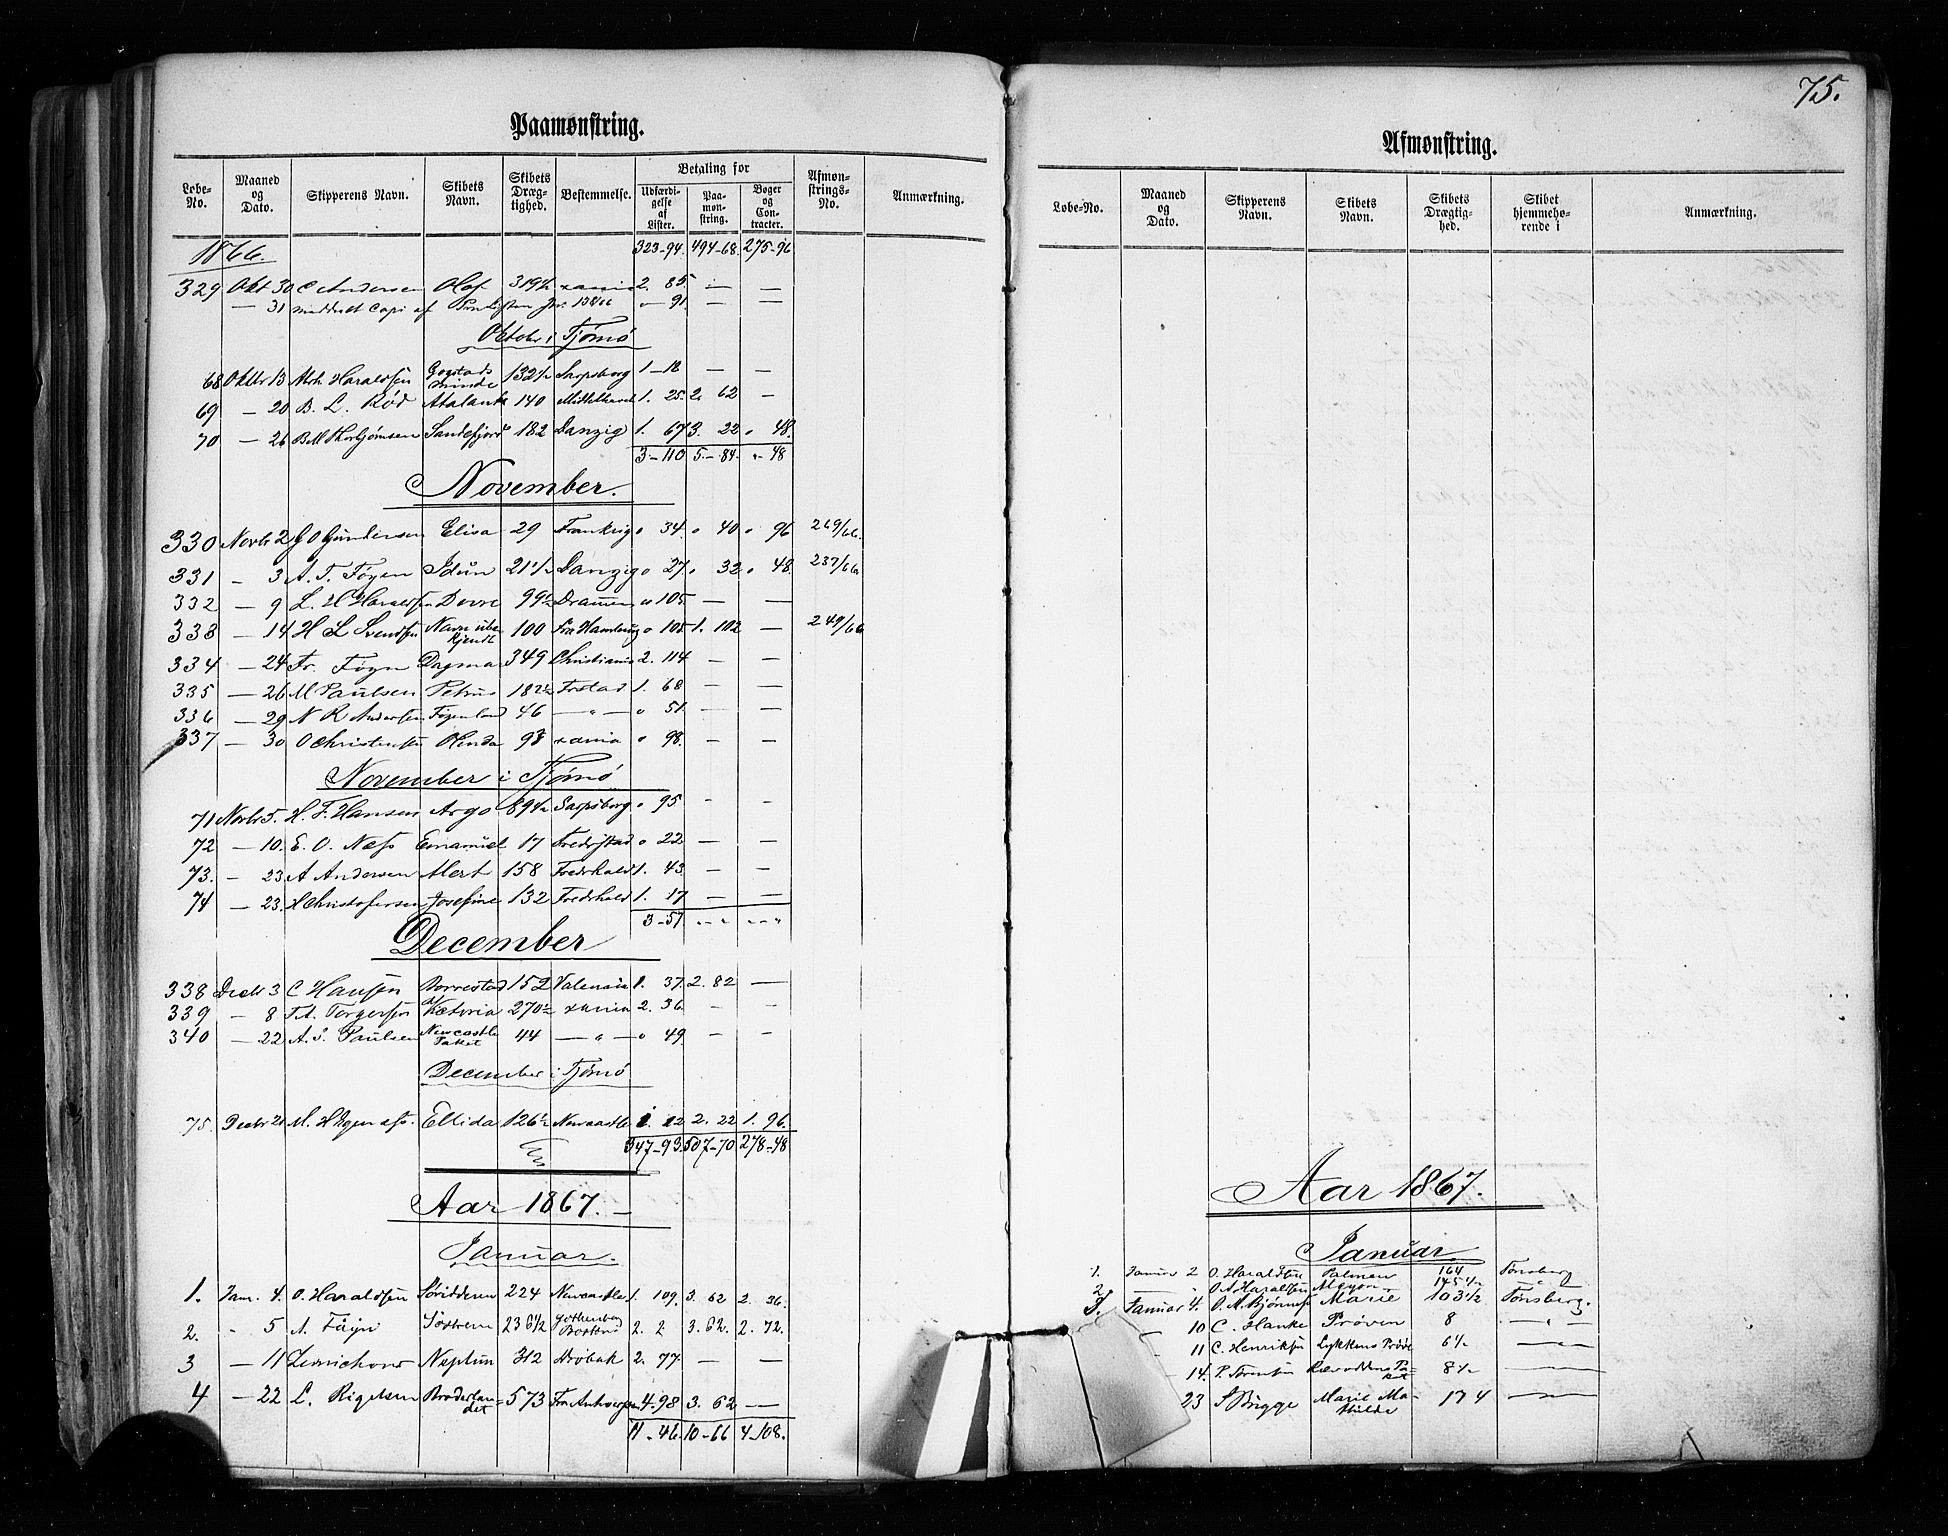 Paamønstring.
Løbe-No. | Maaned og Dato. | Skipperens Navn. | Skibets Navn. | Skibets Drægtighed. | Bestemmelse. | Betaling for | Udfærdigelse af Lister. | Paamonstring. | Bøger og Contracter. | Afmonstrings-No. | Anmærkning.
1866. 323-94. 494-68. 275-96
329 Okt 30 C Andersen Olaf 319½ xania 2. 85. — —
— 31 meddelt Copi af " 91. — —
Oktober i Tjømø
68 Oktbr 13 Haraldsen Gogstads minde 132½ Sarpsborg 1-18 — —
69 — 20 B. L. Rød Atalanta 140 Middelhavet 1. 25. 2. 62 —
70 — 26 Thorbjørnsen Sandefjord 182 Danzig 1. 67 3. 22 " 48.
3-110 5.-84. "-48
November.
330 Novbr 2 G O Gundersen Elisa 29 Frankrig " 34. " 40 " 96 269/66.
331 — 3 A. T. Føyen Idun 21½ Danzig " 27. " 32 " 48. 237/66
332 — 9 L. H Haraldsen Dovre 99½ Drammen " 105. — —
333 — 14 H L Svendsen Navn ube kjendt 100 Fra Hamburg " 105 1. 102 — 249/66
334 — 24 Fr. Føyn Dagmar 349 Christiania 2. 114 — —
335 — 26 M Paulsen Petrus 182½ Frstad 1. 68 — —
336 — 29 N R Andersen Føyenland 46 — " — " 51 — —
337 — 30 O Christensen Olenda 98 xania " 98. — —
November i Tjømø
71 Novbr 5. H. F. Hansen Argo 89½ Sarpsborg " 95 — —
72 — 10. E. O. Næss Emanuel 17 Fredrstad " 22 — —
73. — 23 A Andersen Alert 158 Fredrhald 1. 43. — —
74 — 23. H Christofersen Josefine 132 Fredrhald 1. 17 — —
3-51 "-" "-"
December
338 Decbr 3 C Hansen Borrestad 152 Valensia 1. 37. 2. 82 —
339 — 8 T. A. Torgersen Victoria 270½ xania 2. 36. — —
340 — 22 A. S. Paulsen Newcastle Paket 44 — " — " 49. — —
December i Tjømø
75. Decbr 21 M. H Agenæss. Ellida 126½ Newcastle 1. 22 2. 22 1. 96.
347-93. 507-70 278-48
Aar 1867. —
Januar.
1. Jan. 4. O. Haraldsen Søridderen 224 Newcastle 1. 109. 3. 62 2. 36.
2. " 5 A. Føyn Søstrene 236½ Gothenborg Boston 2. 2 3. 62. 2. 72.
3 — 11 Neptun 312 Drøbak 2. 77. — —
4 — 22 L. Rigelsen Broderlandet 573 Fra Antwerpen 4. 98 3. 62 —
11-46. 10-66 4-108.
75.
Afmønstring.
Løbe-No. | Maaned og Dato. | Skipperens Navn. | Skibets Navn. | Skibets Drægtighed. | Skibet hjemmehorende i | Anmærkning.
Aar 1867.
Januar
1. Januar 2 O. Haraldsen Palmen 164 Tønsberg
2 " O. A Haralsen 145½ "
3. Januar 4. O. A. Bjønnes Marie 103½ Tønsberg.
10 C. Hanke Prøven 8 — " —
11 C. Henriksen Lykkens Prøve 6½ —
14. P. Sørensen Paket 8½ —
23 S Brigge Marie Mathilde 174 —